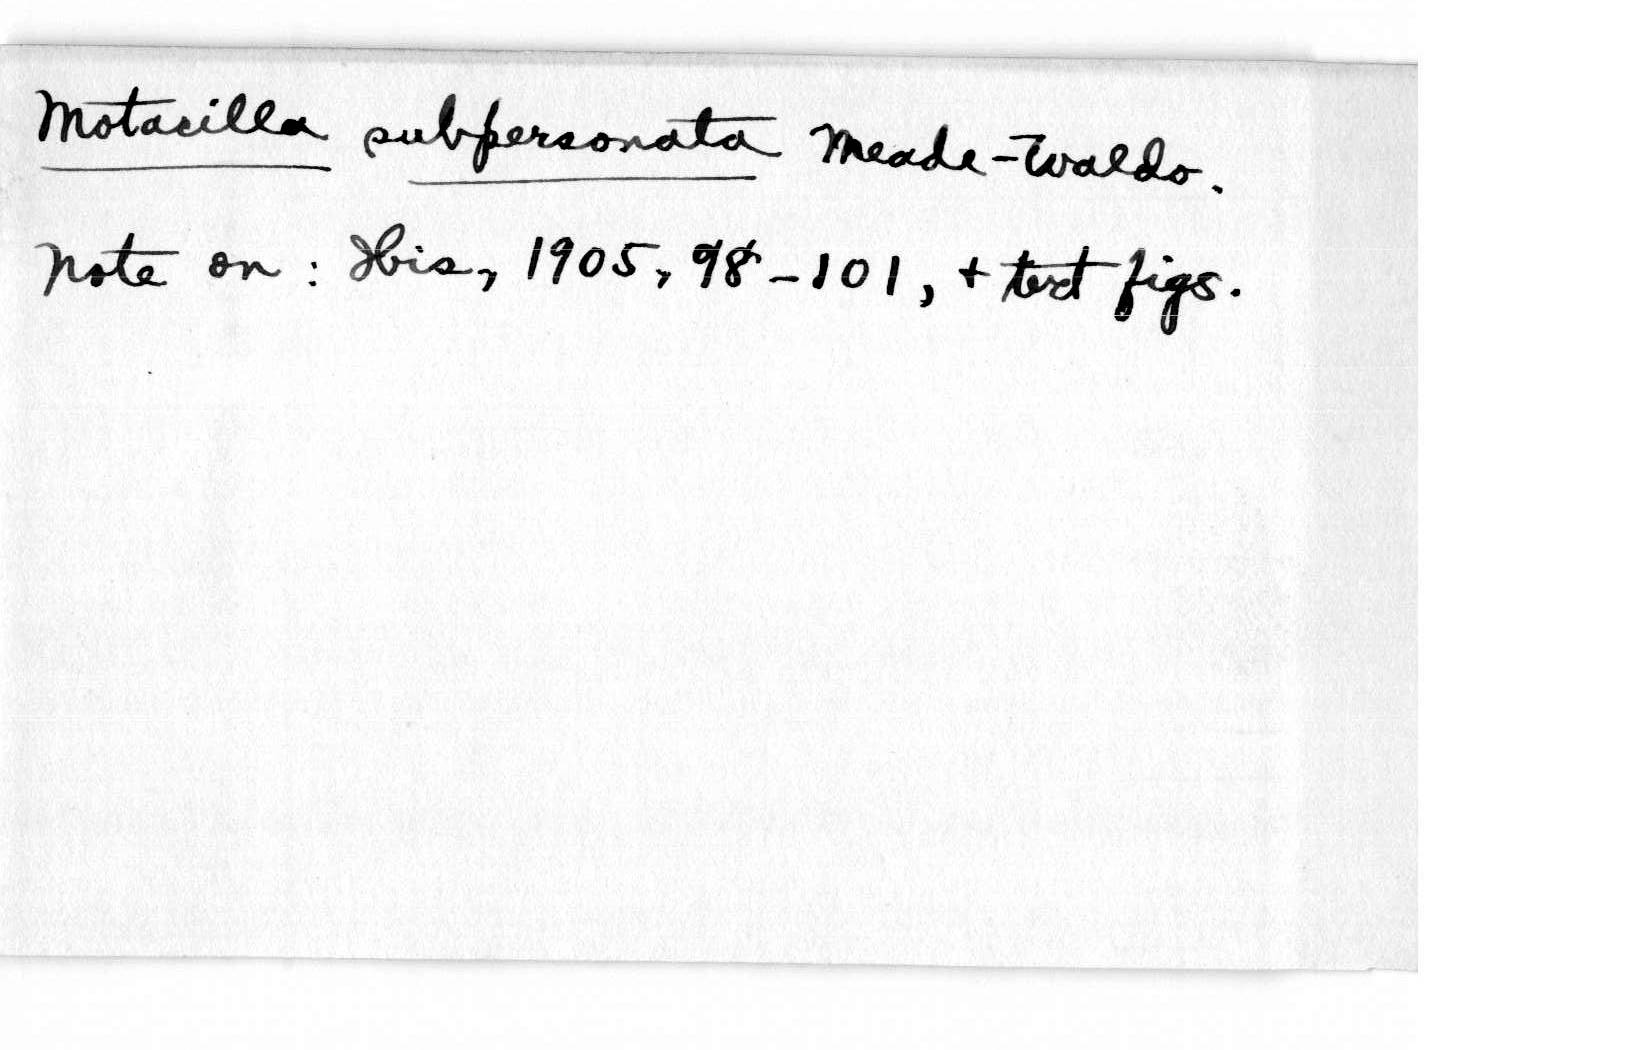 Motacilla subpersonata Meade-Waldo.
Note on: Ibis, 1905, 98-101, + text figs.